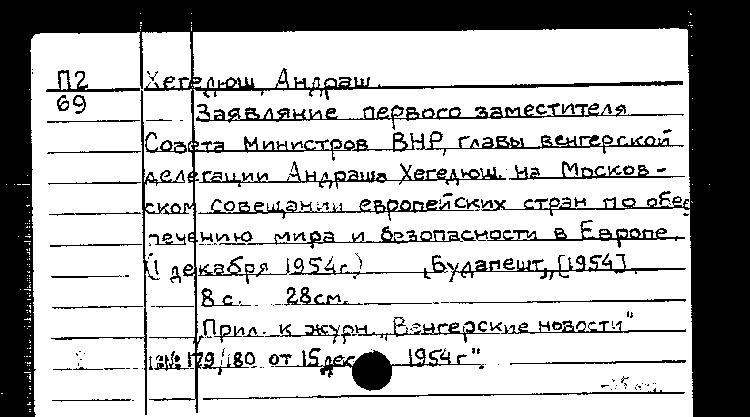 П2 Хегедюш, Андраш.
69 Заявляние первого заместителя
Совета Министров ВНР, главы венгерской
делегации Андраша Хегедюш на Москов-
ском совещании европейских стран по обес
печению мира и безопасности в Европе.
(1 декабря 1954г.) Будапешт, [1954].
8 с. 28см.
„Прил. к журн. „Венгерские новости"
№ 179/180 от 15 дек 1954 г".